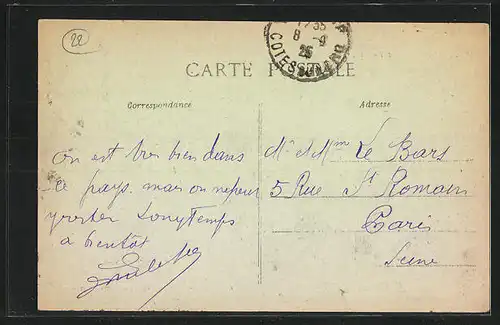 22
12 35
8 -9
25
COTES DU NORD
CARTE POSTALE
Correspondance
Adresse
On est très bien dans
ce pays mais on ne peut
y rester Longtemps
à bientôt
Mr et Mme Le Bars
5 Rue St Romain
Paris
Seine